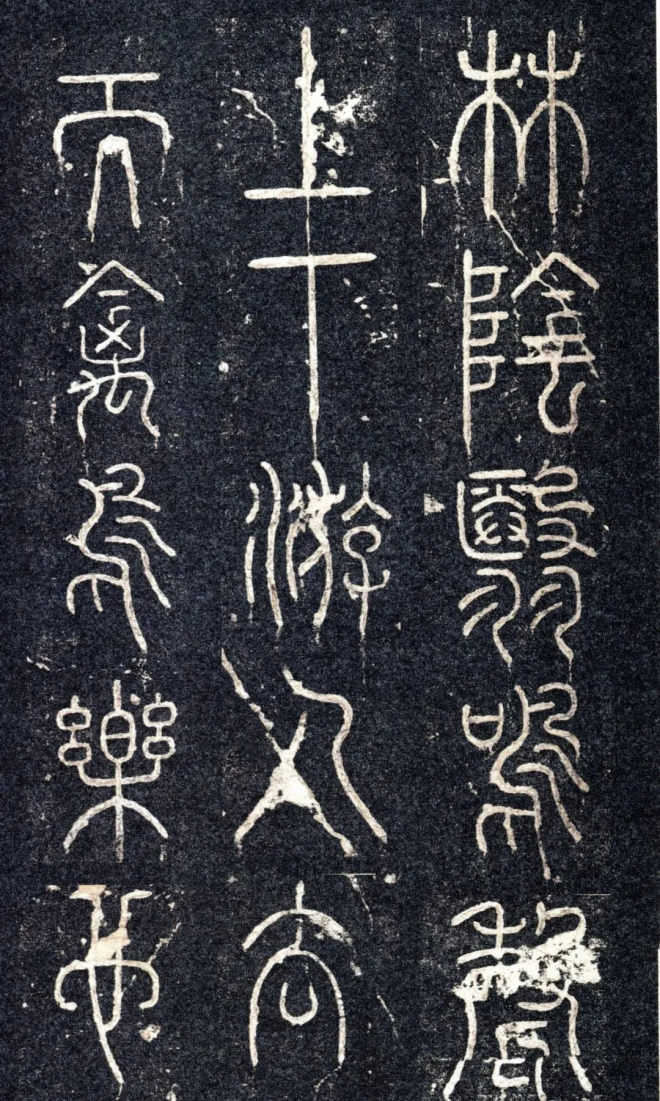 林陰翳鳴聲
上下游人去
而禽鳥樂也